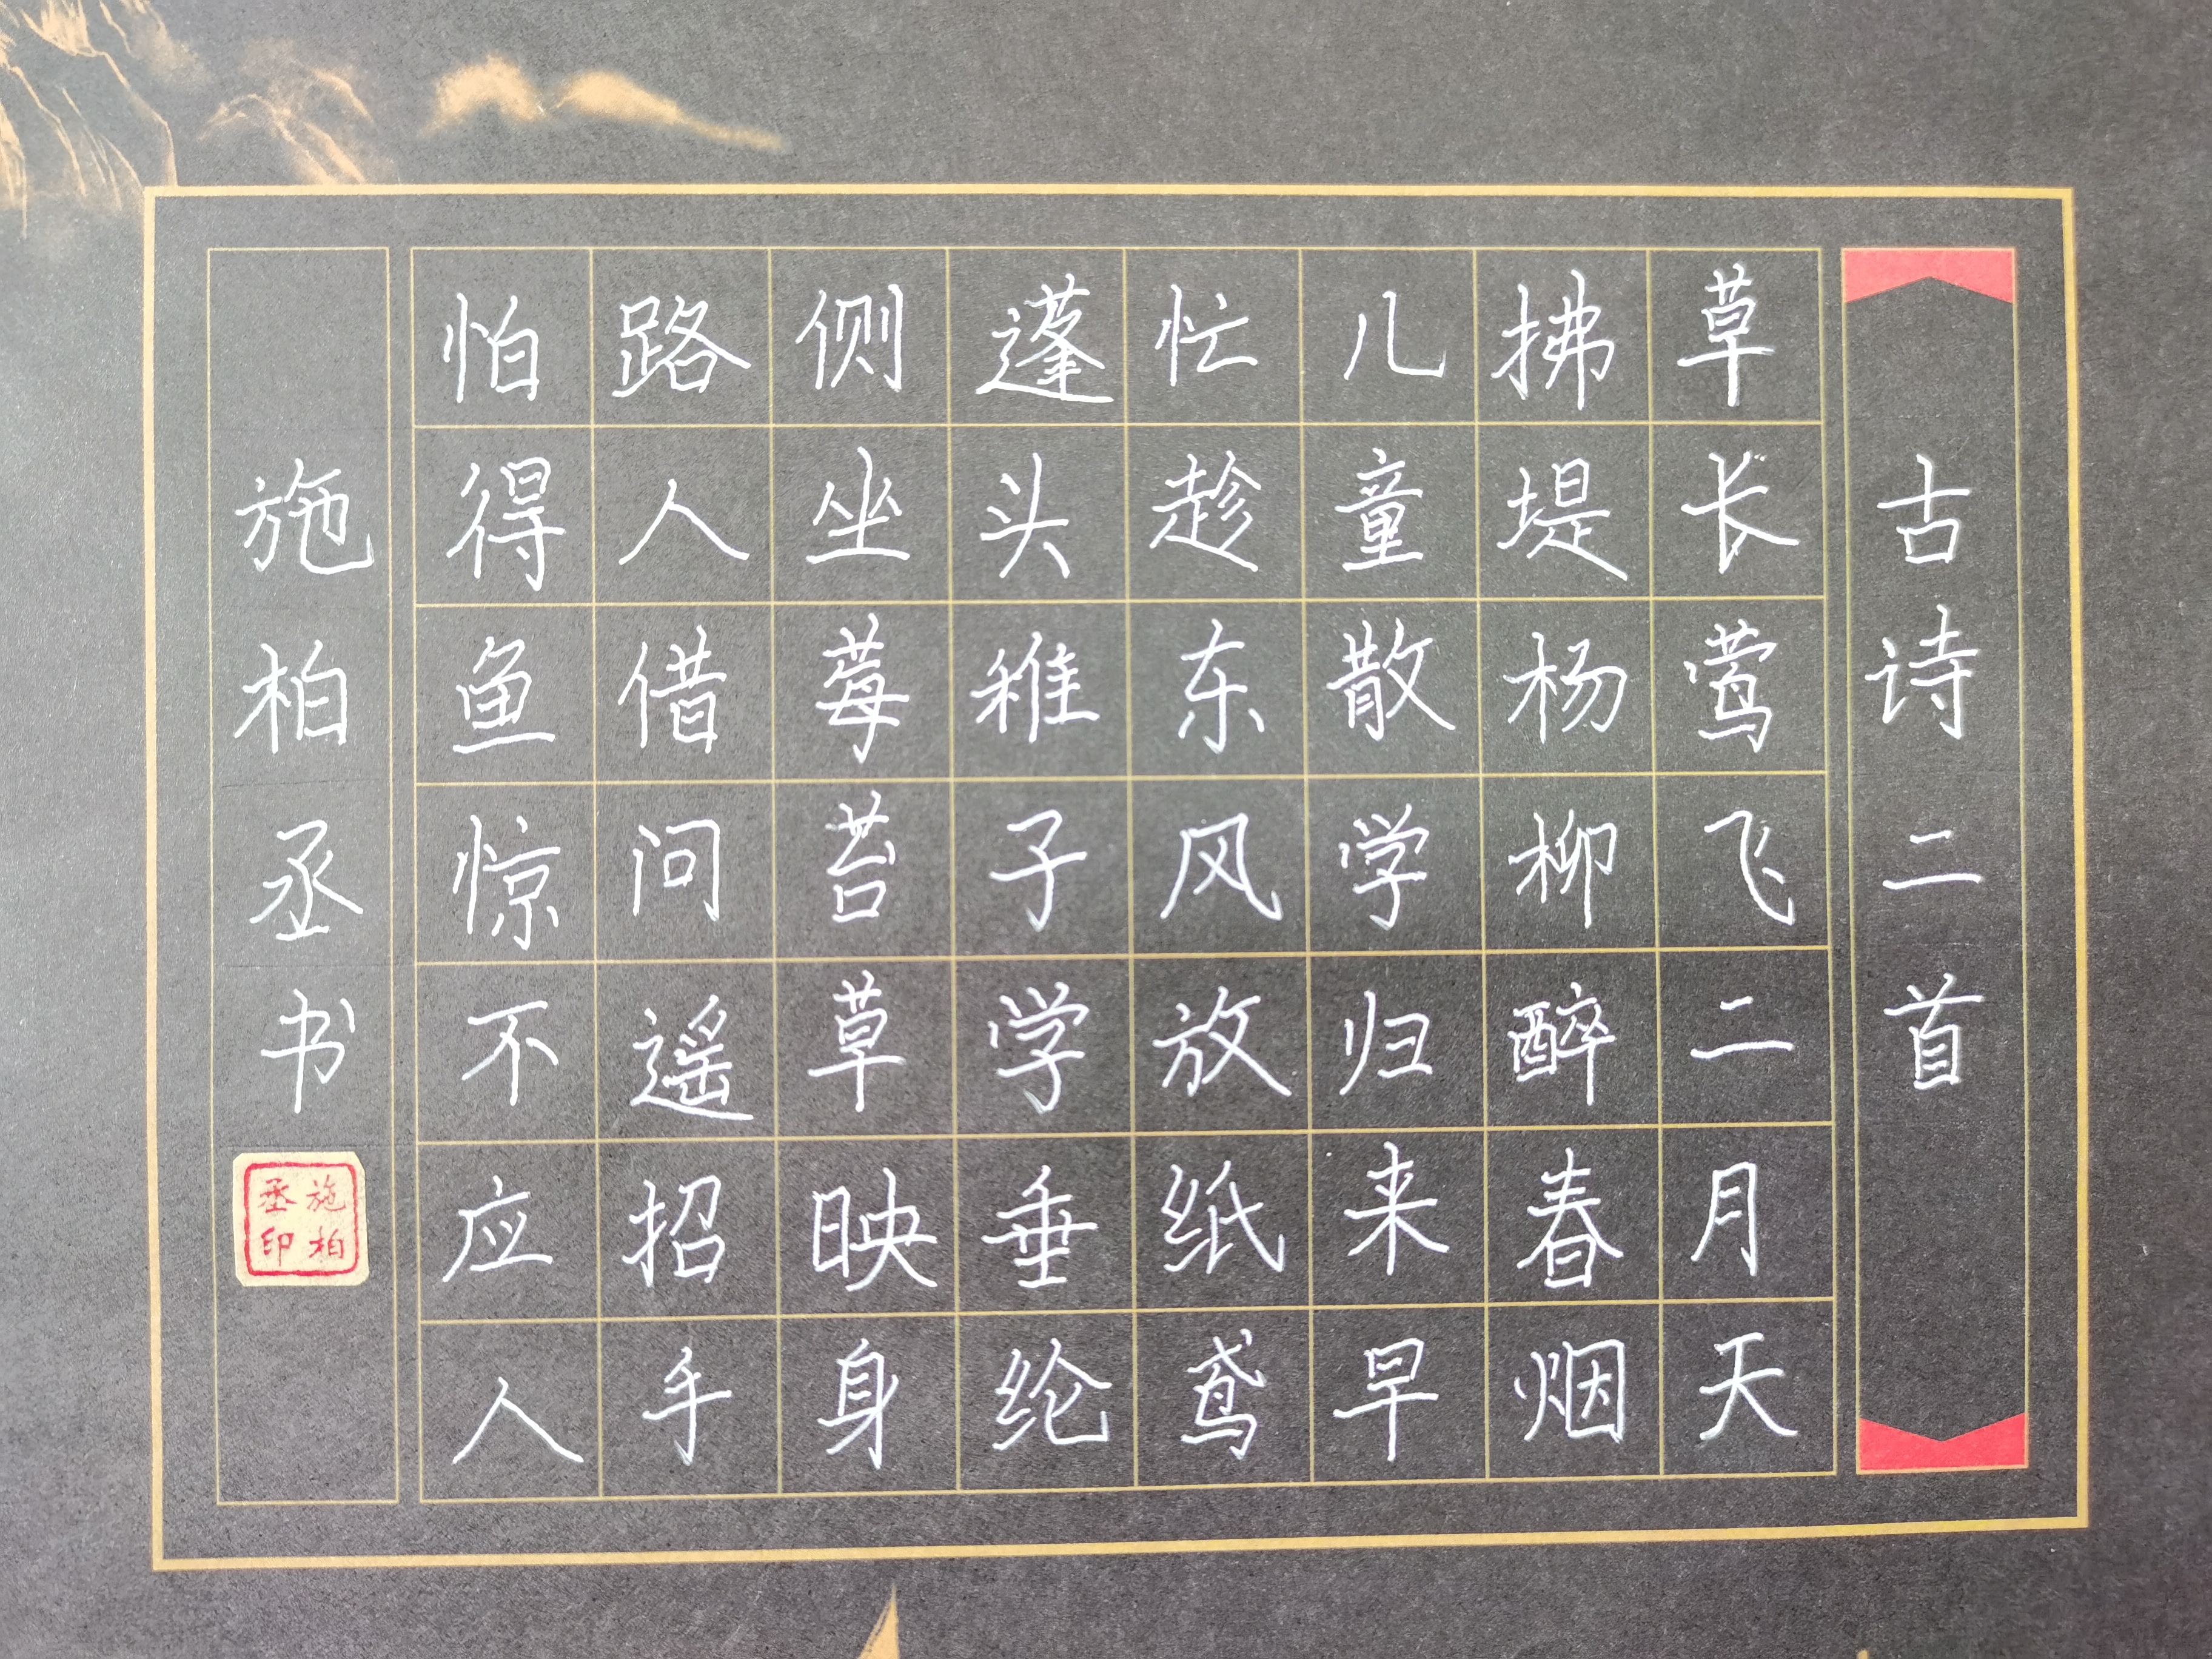 古诗二首
草长莺飞二月天
拂堤杨柳醉春烟
儿童散学归来早
忙趁东风放纸鸢
蓬头稚子学垂纶
侧坐莓苔草映身
路人借问遥招手
怕得鱼惊不应人
施柏丞书
施柏
丞印